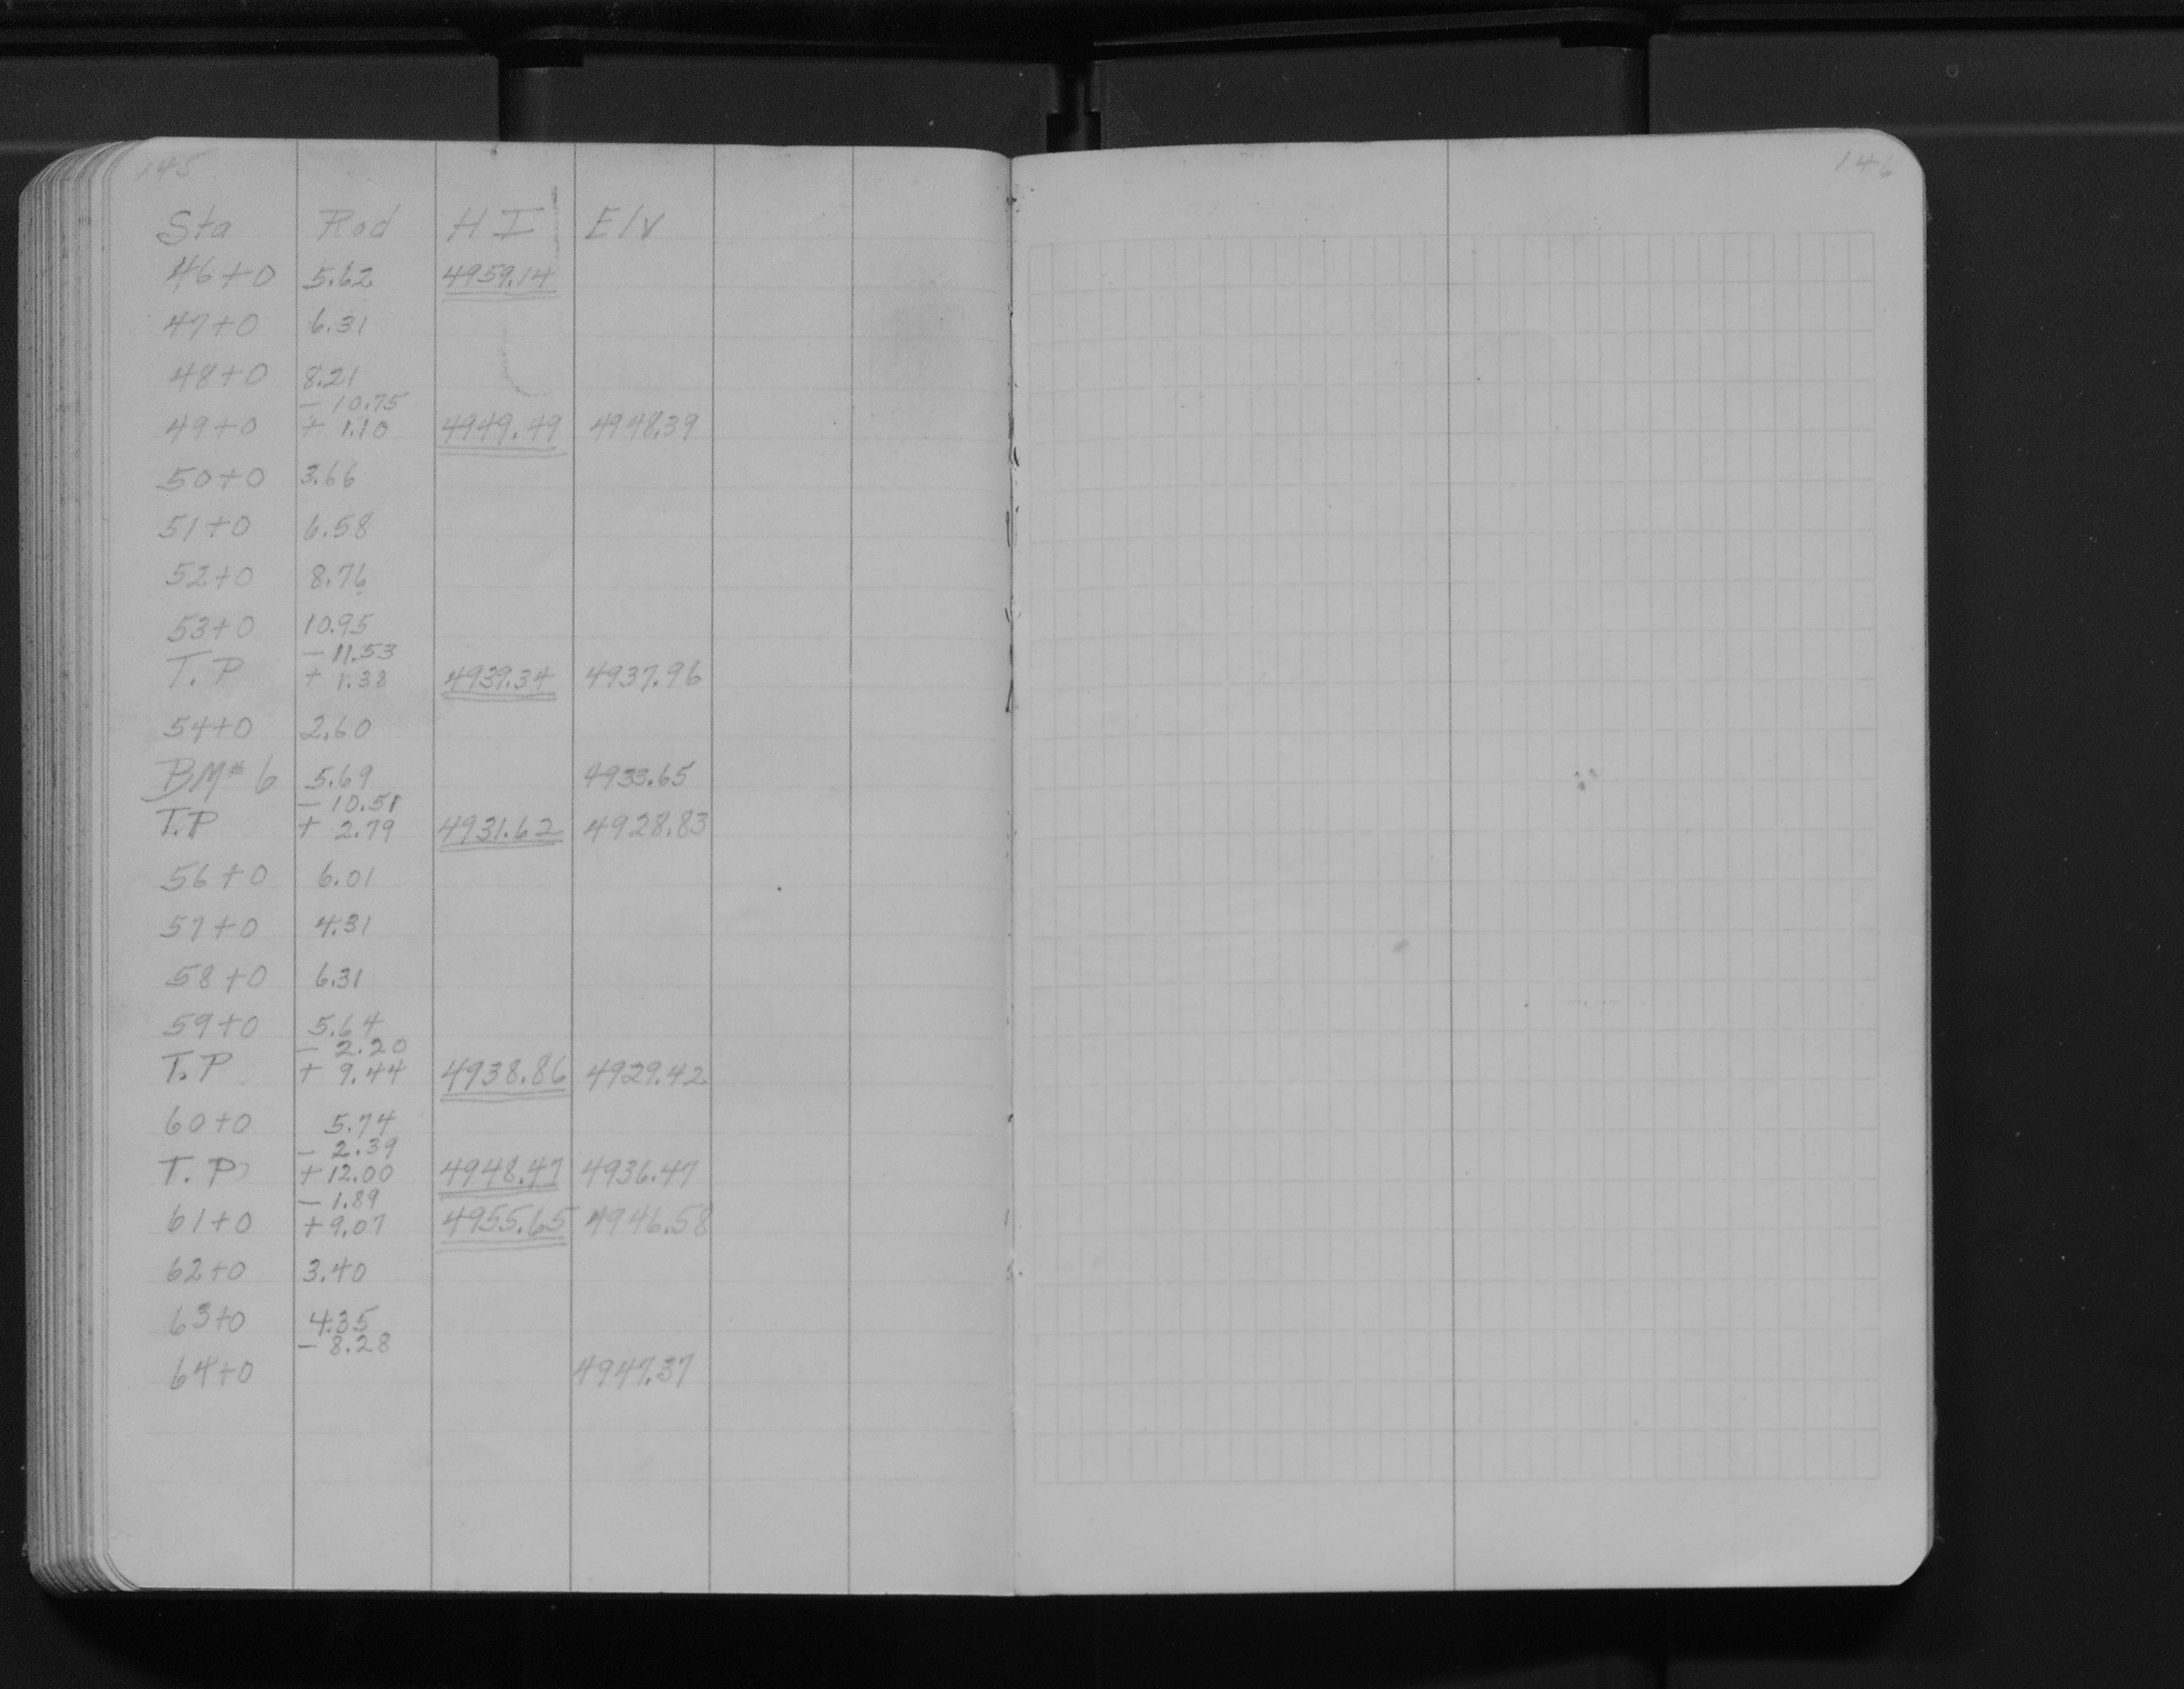 145
146
Sta Rod H I Elv
46+0 5.62 4959.14
47+0 6.31
48+0 8.21
- 10.75
49+0 + 1.10 4949.49 4948.39
50+0 3.66
51+0 6.58
52+0 8.76
53+0 10.95
- 11.53
T.P + 1.38 4939.34 4937.96
54+0 2.60
BM#6 5.69 4933.65
- 10.51
T.P + 2.79 4931.62 4928.83
56+0 6.01
57+0 4.31
58+0 6.31
59+0 5.64
- 2.20
T.P + 9.44 4938.86 4929.42
60+0 5.74
- 2.39
T.P + 12.00 4948.47 4936.47
- 1.89
61+0 + 9.07 4955.65 4946.58
62+0 3.40
63+0 4.35
- 8.28
64+0 4947.37